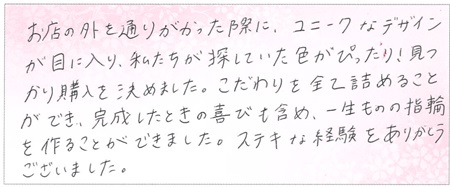 お店の外を通りがかった際に、ユニークなデザイン
が目に入り、私たちが探していた色がぴったり！見つ
かり購入を決めました。こだわりを全て詰めること
ができ、完成したときの喜びも含め、一生ものの指輪
を作ることができました。ステキな経験をありがとう
ございました。